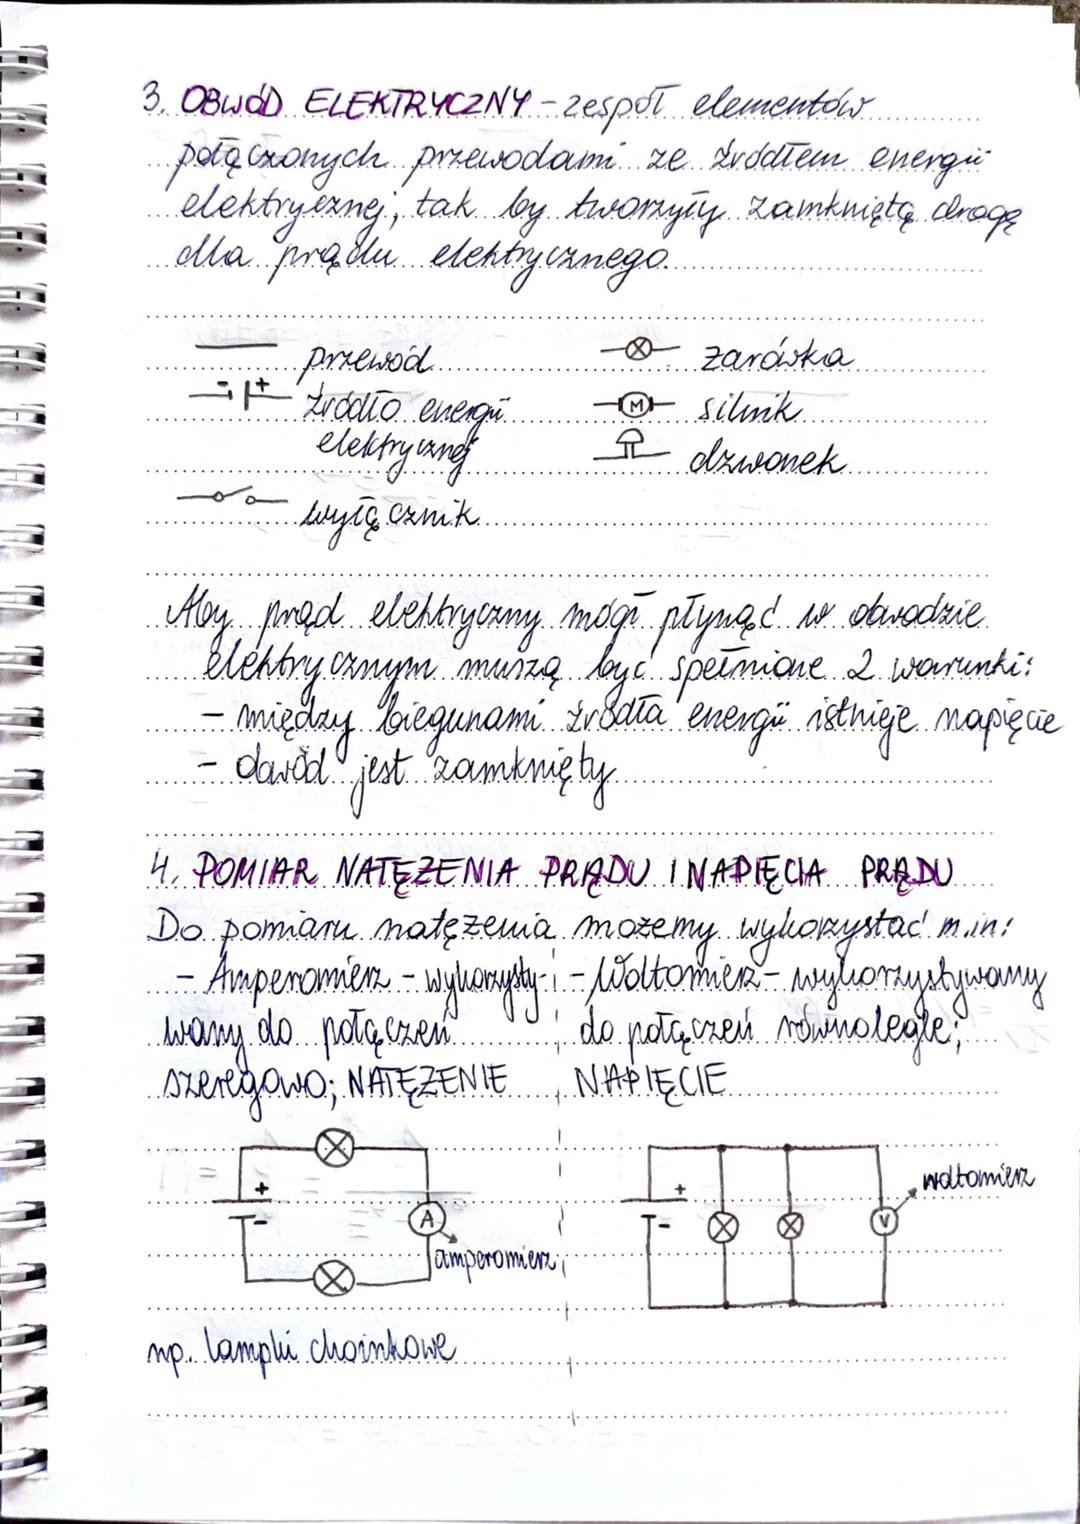 3. OBWÓD ELEKTRYCZNY - zespół elementów
połączonych przewodami ze źródłem energii
elektrycznej, tak by tworzyły zamkniętą drogę
dla prądu elektrycznego.
przewód
żarówka
- +
źródło energii
elektrycznej
M
silnik
dzwonek
wyłącznik
Aby prąd elektryczny mógł płynąć w obwodzie
elektrycznym muszą być spełnione 2 warunki:
- między biegunami źródła energii istnieje napięcie
- obwód jest zamknięty
4. POMIAR NATĘŻENIA PRĄDU I NAPIĘCIA PRĄDU
Do pomiaru natężenia możemy wykorzystać m.in:
- Amperomierz - wykorzysty-
wany do połączeń
szeregowo; NATĘŻENIE
- Woltomierz - wykorzystywany
do połączeń równolegle;
NAPIĘCIE
+
-
A
amperomierz
+
-
V
woltomierz
np. lampki choinkowe